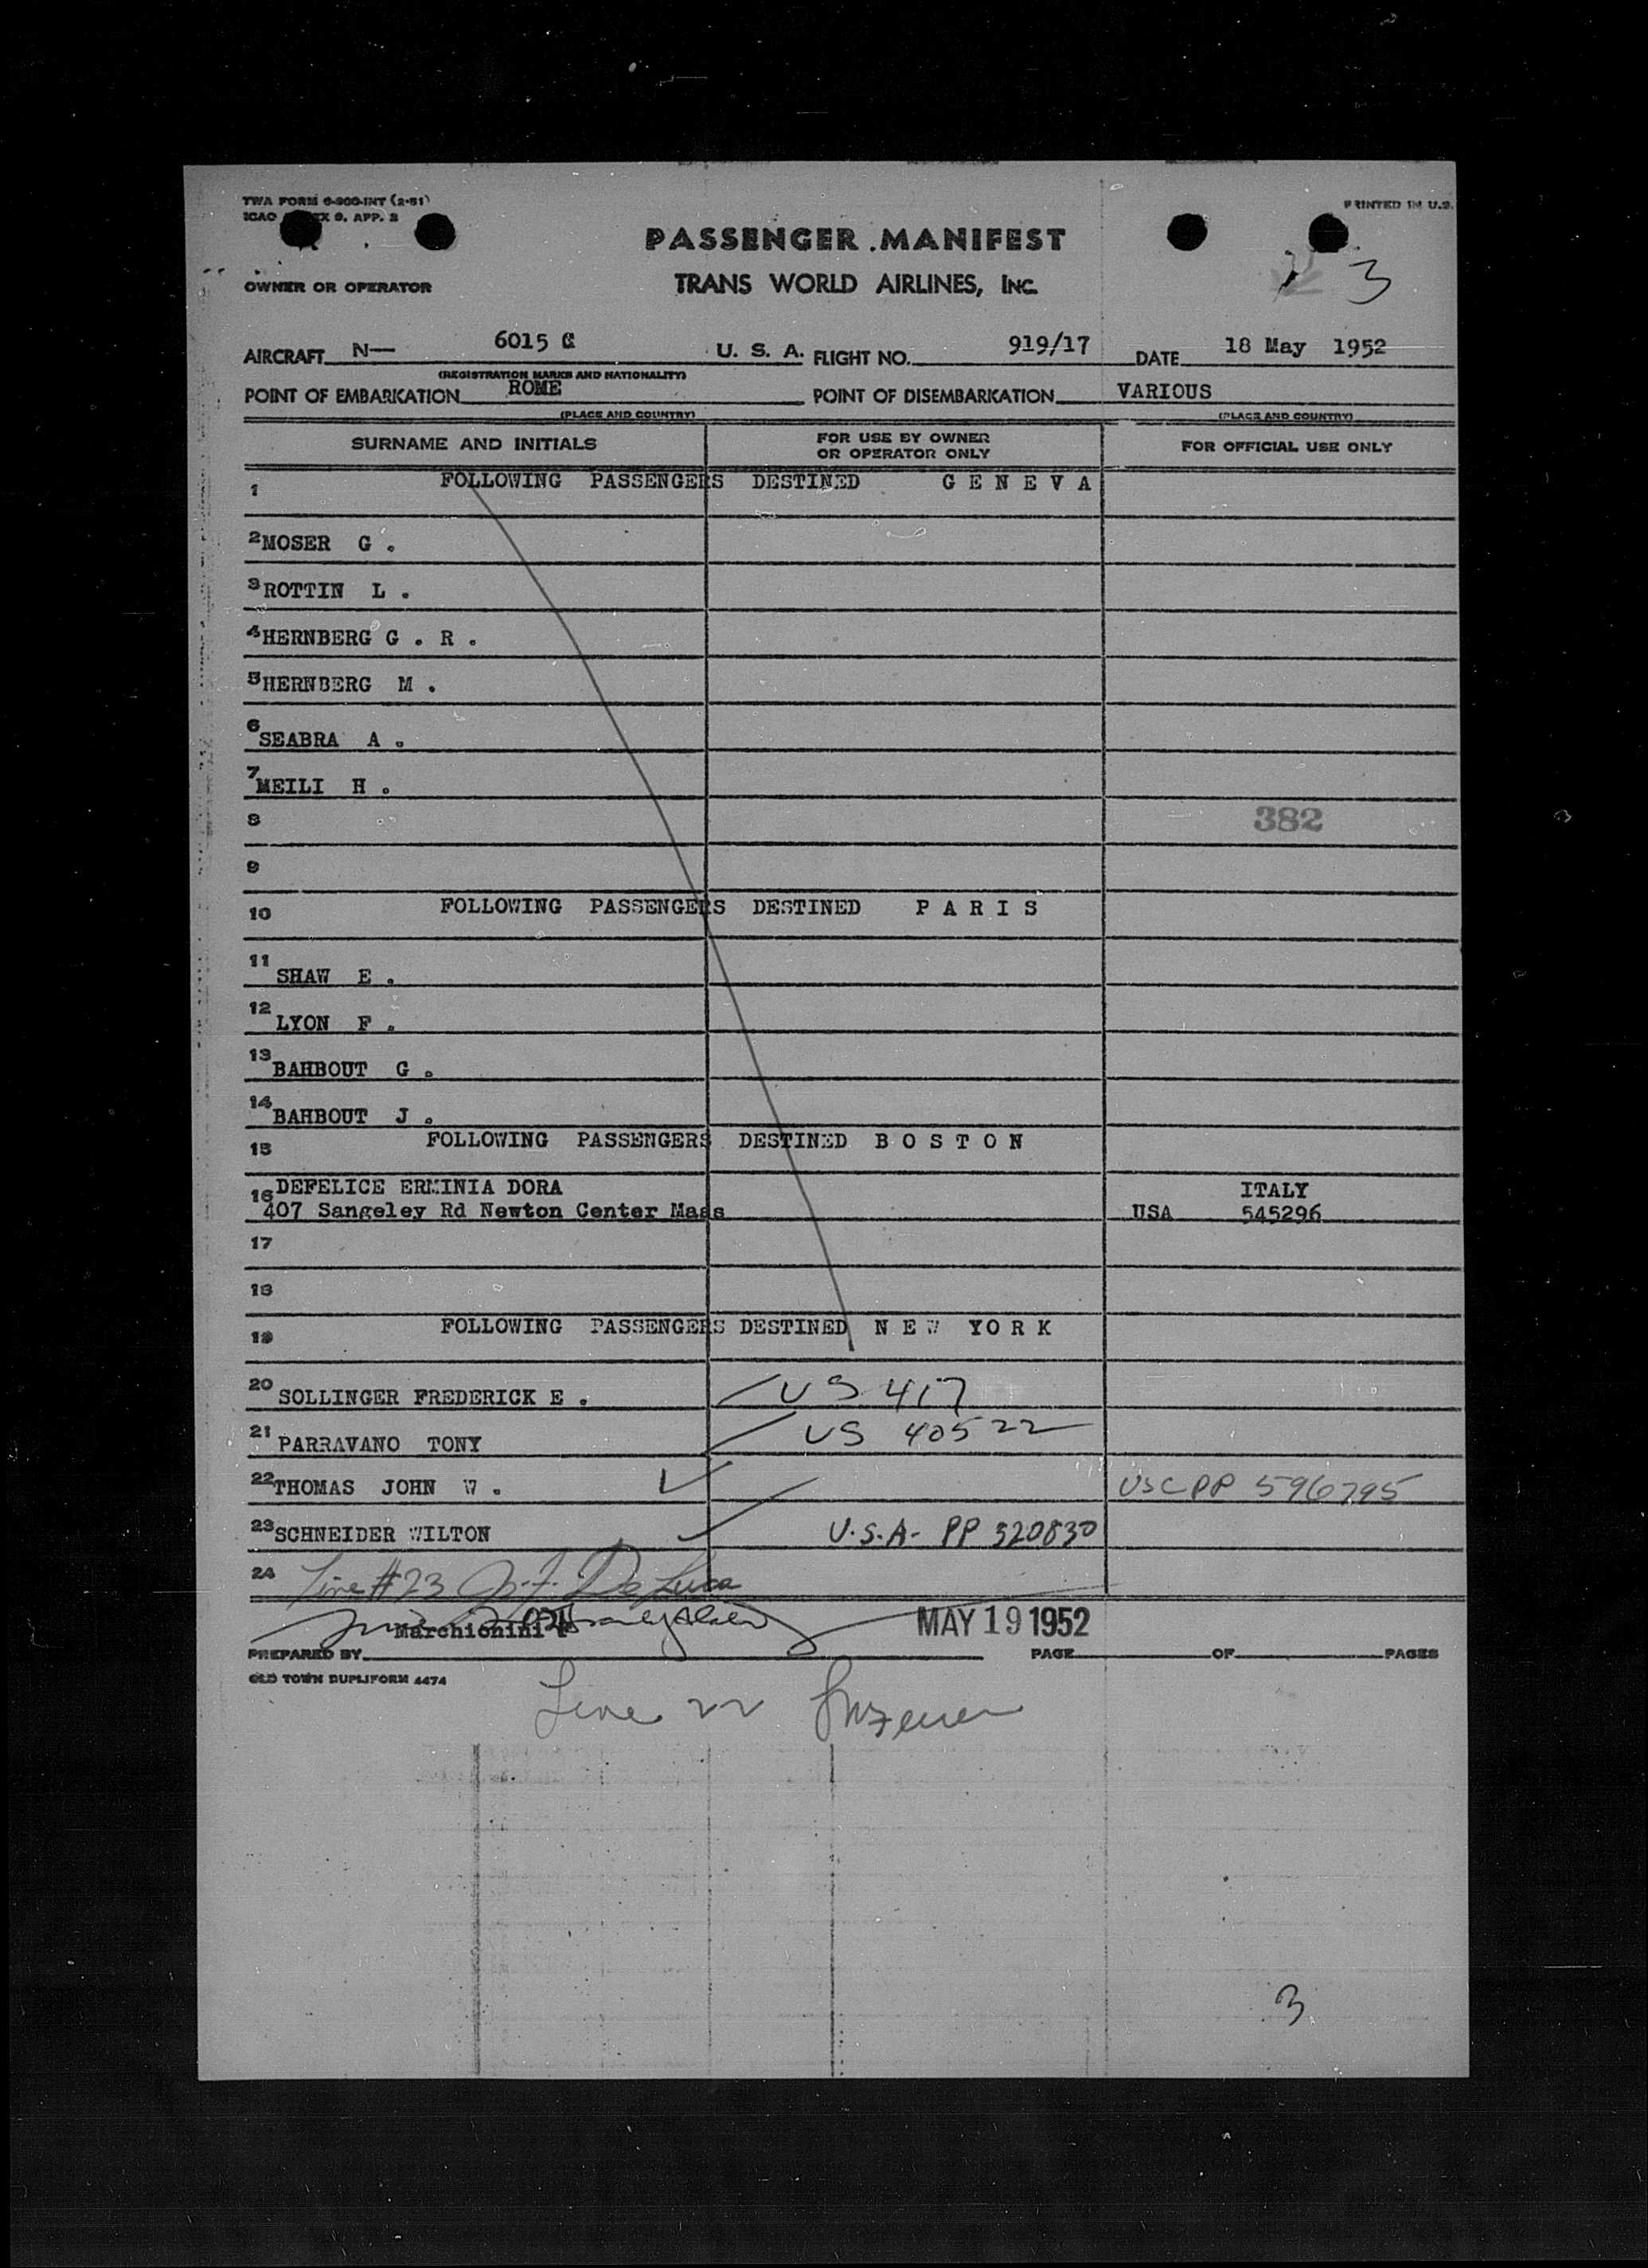 TWA FORM 6-900-INT (2-51)
ICAO X 9. APP. 2
PRINTED IN U.S.
PASSENGER MANIFEST
3
OWNER OR OPERATOR
TRANS WORLD AIRLINES, INC.
AIRCRAFT N— 6015 C U. S. A. FLIGHT NO. 919/17 DATE 18 May 1952
(REGISTRATION MARKS AND NATIONALITY)
POINT OF EMBARKATION ROME POINT OF DISEMBARKATION VARIOUS
(PLACE AND COUNTRY) (PLACE AND COUNTRY)
SURNAME AND INITIALS FOR USE BY OWNER OR OPERATOR ONLY FOR OFFICIAL USE ONLY
1 FOLLOWING PASSENGERS DESTINED G E N E V A
2 MOSER G .
3 ROTTIN L .
4 HERNBERG G . R .
5 HERNBERG M .
6 SEABRA A .
7 MEILI H .
8 382
9
10 FOLLOWING PASSENGERS DESTINED P A R I S
11 SHAW E .
12 LYON F .
13 BAHBOUT G .
14 BAHBOUT J .
15 FOLLOWING PASSENGERS DESTINED B O S T O N
16 DEFELICE ERMINIA DORA ITALY
407 Sangeley Rd Newton Center Mass USA 545296
17
18
19 FOLLOWING PASSENGERS DESTINED N E W Y O R K
20 SOLLINGER FREDERICK E . US 417
21 PARRAVANO TONY US 40522
22 THOMAS JOHN W . USC PP 596795
23 SCHNEIDER WILTON U.S.A- PP 320830
24 Line #23 De Luca
Marchionini MAY 19 1952
PREPARED BY PAGE OF PAGES
OLD TOWN DUPLIFORM 4474
Line 22
3